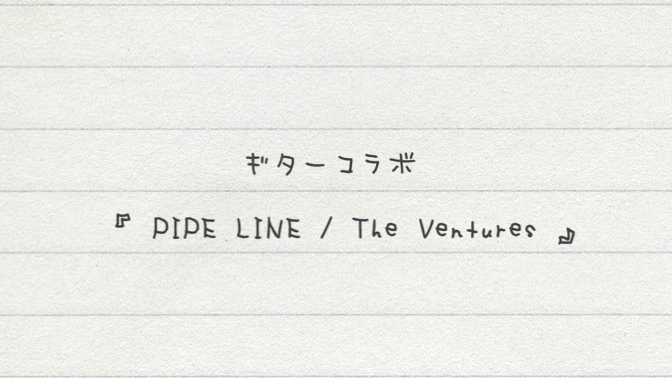 ギターコラボ
『 PIPE LINE / The Ventures 』